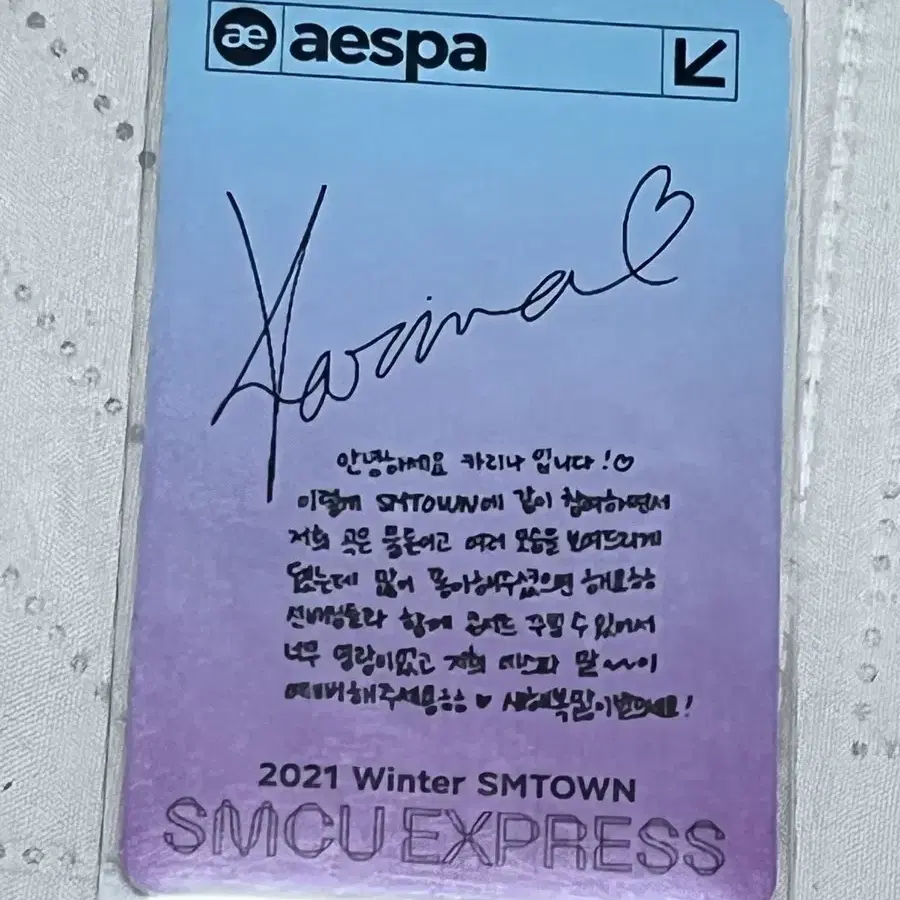 ae aespa
Karina
안녕하세요 카리나 입니다!♡
이렇게 SMTOWN에 같이 참여하면서
저희 곡은 물론이고 여러 모습을 보여드리게
됐는데 많이 좋아해주셨으면 해요ㅎㅎ
선배님들과 함께 콘서트 꾸밀 수 있어서
너무 영광이었고 저희 에스파 많~~이
예뻐해주세용ㅎㅎ ♥ 새해복많이받으세요!
2021 Winter SMTOWN
SMCU EXPRESS